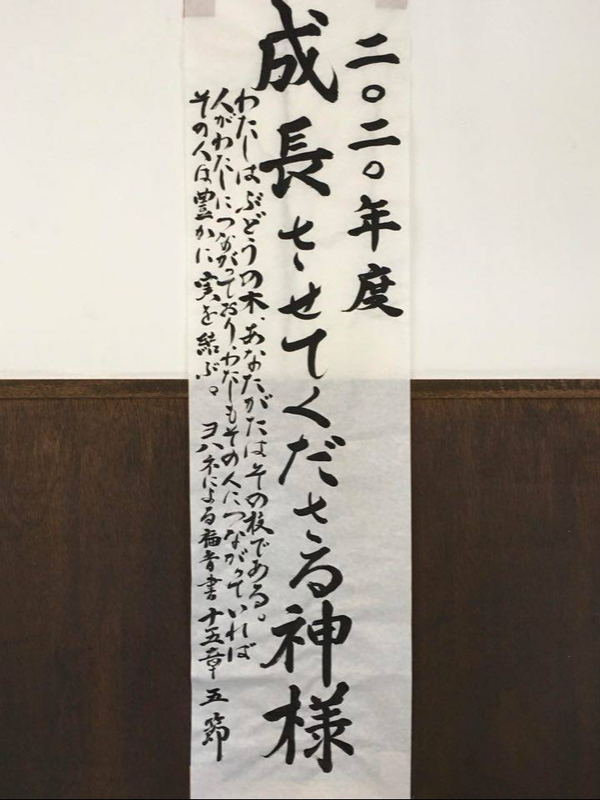 二〇二〇年度
成長させてくださる神様
わたしはぶどうの木、あなたがたはその枝である。
人がわたしにつながっており、わたしもその人につながっていれば
その人は豊かに実を結ぶ。 ヨハネによる福音書 十五章 五節